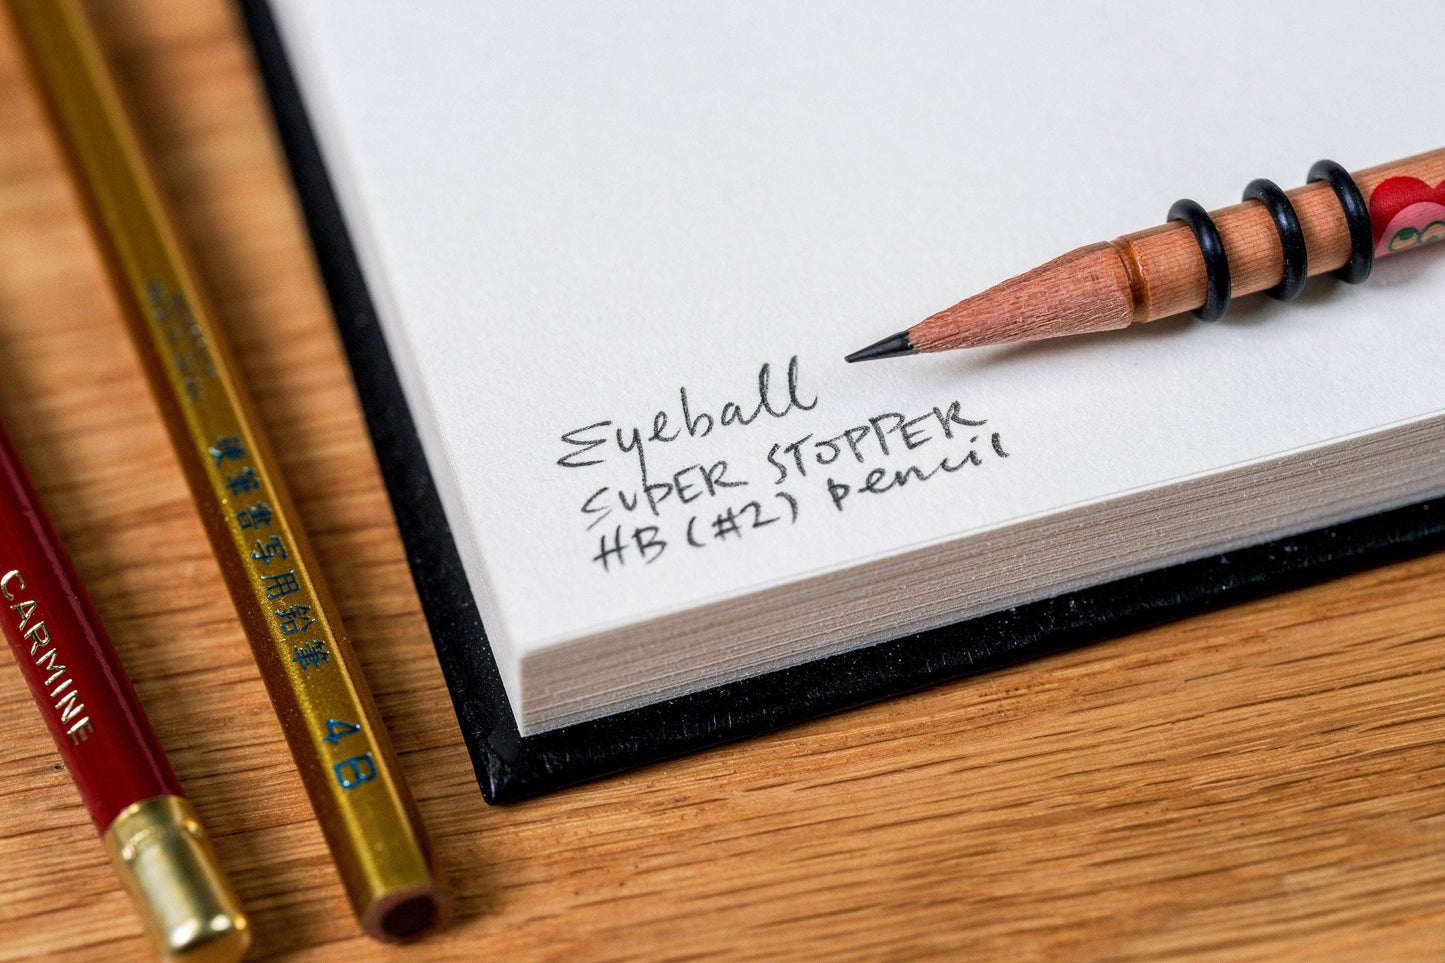 Eyeball
SUPER STOPPER
HB (#2) pencil
硬筆書写用鉛筆
4B
CARMINE